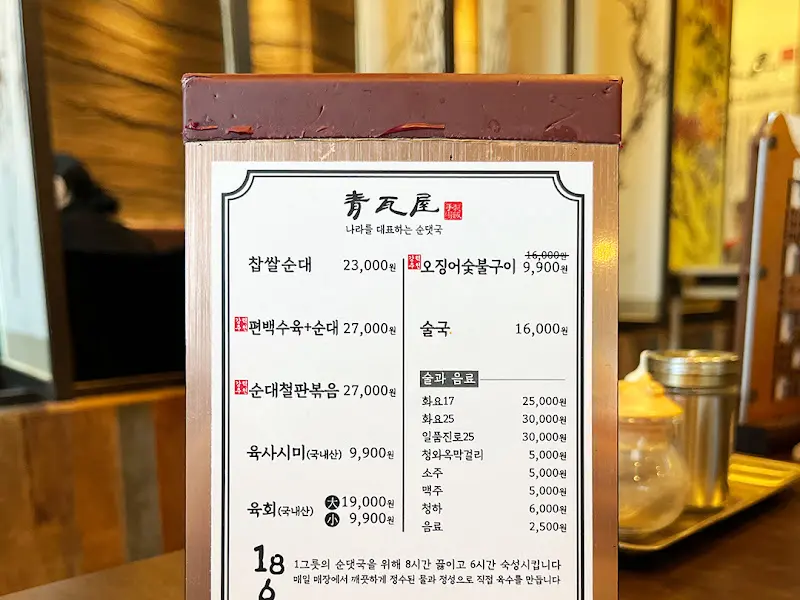 青瓦屋
나라를 대표하는 순댓국
찹쌀순대 23,000원
강력추천 편백수육+순대 27,000원
강력추천 순대철판볶음 27,000원
육사시미(국내산) 9,900원
육회(국내산) 大 19,000원
小 9,900원
강력추천 오징어숯불구이 16,000원 9,900원
술국 16,000원
술과 음료
화요17 25,000원
화요25 30,000원
일품진로25 30,000원
청와옥막걸리 5,000원
소주 5,000원
맥주 5,000원
청하 6,000원
음료 2,500원
186
1그릇의 순댓국을 위해 8시간 끓이고 6시간 숙성시킵니다
매일 매장에서 깨끗하게 정수된 물과 정성으로 직접 육수를 만듭니다